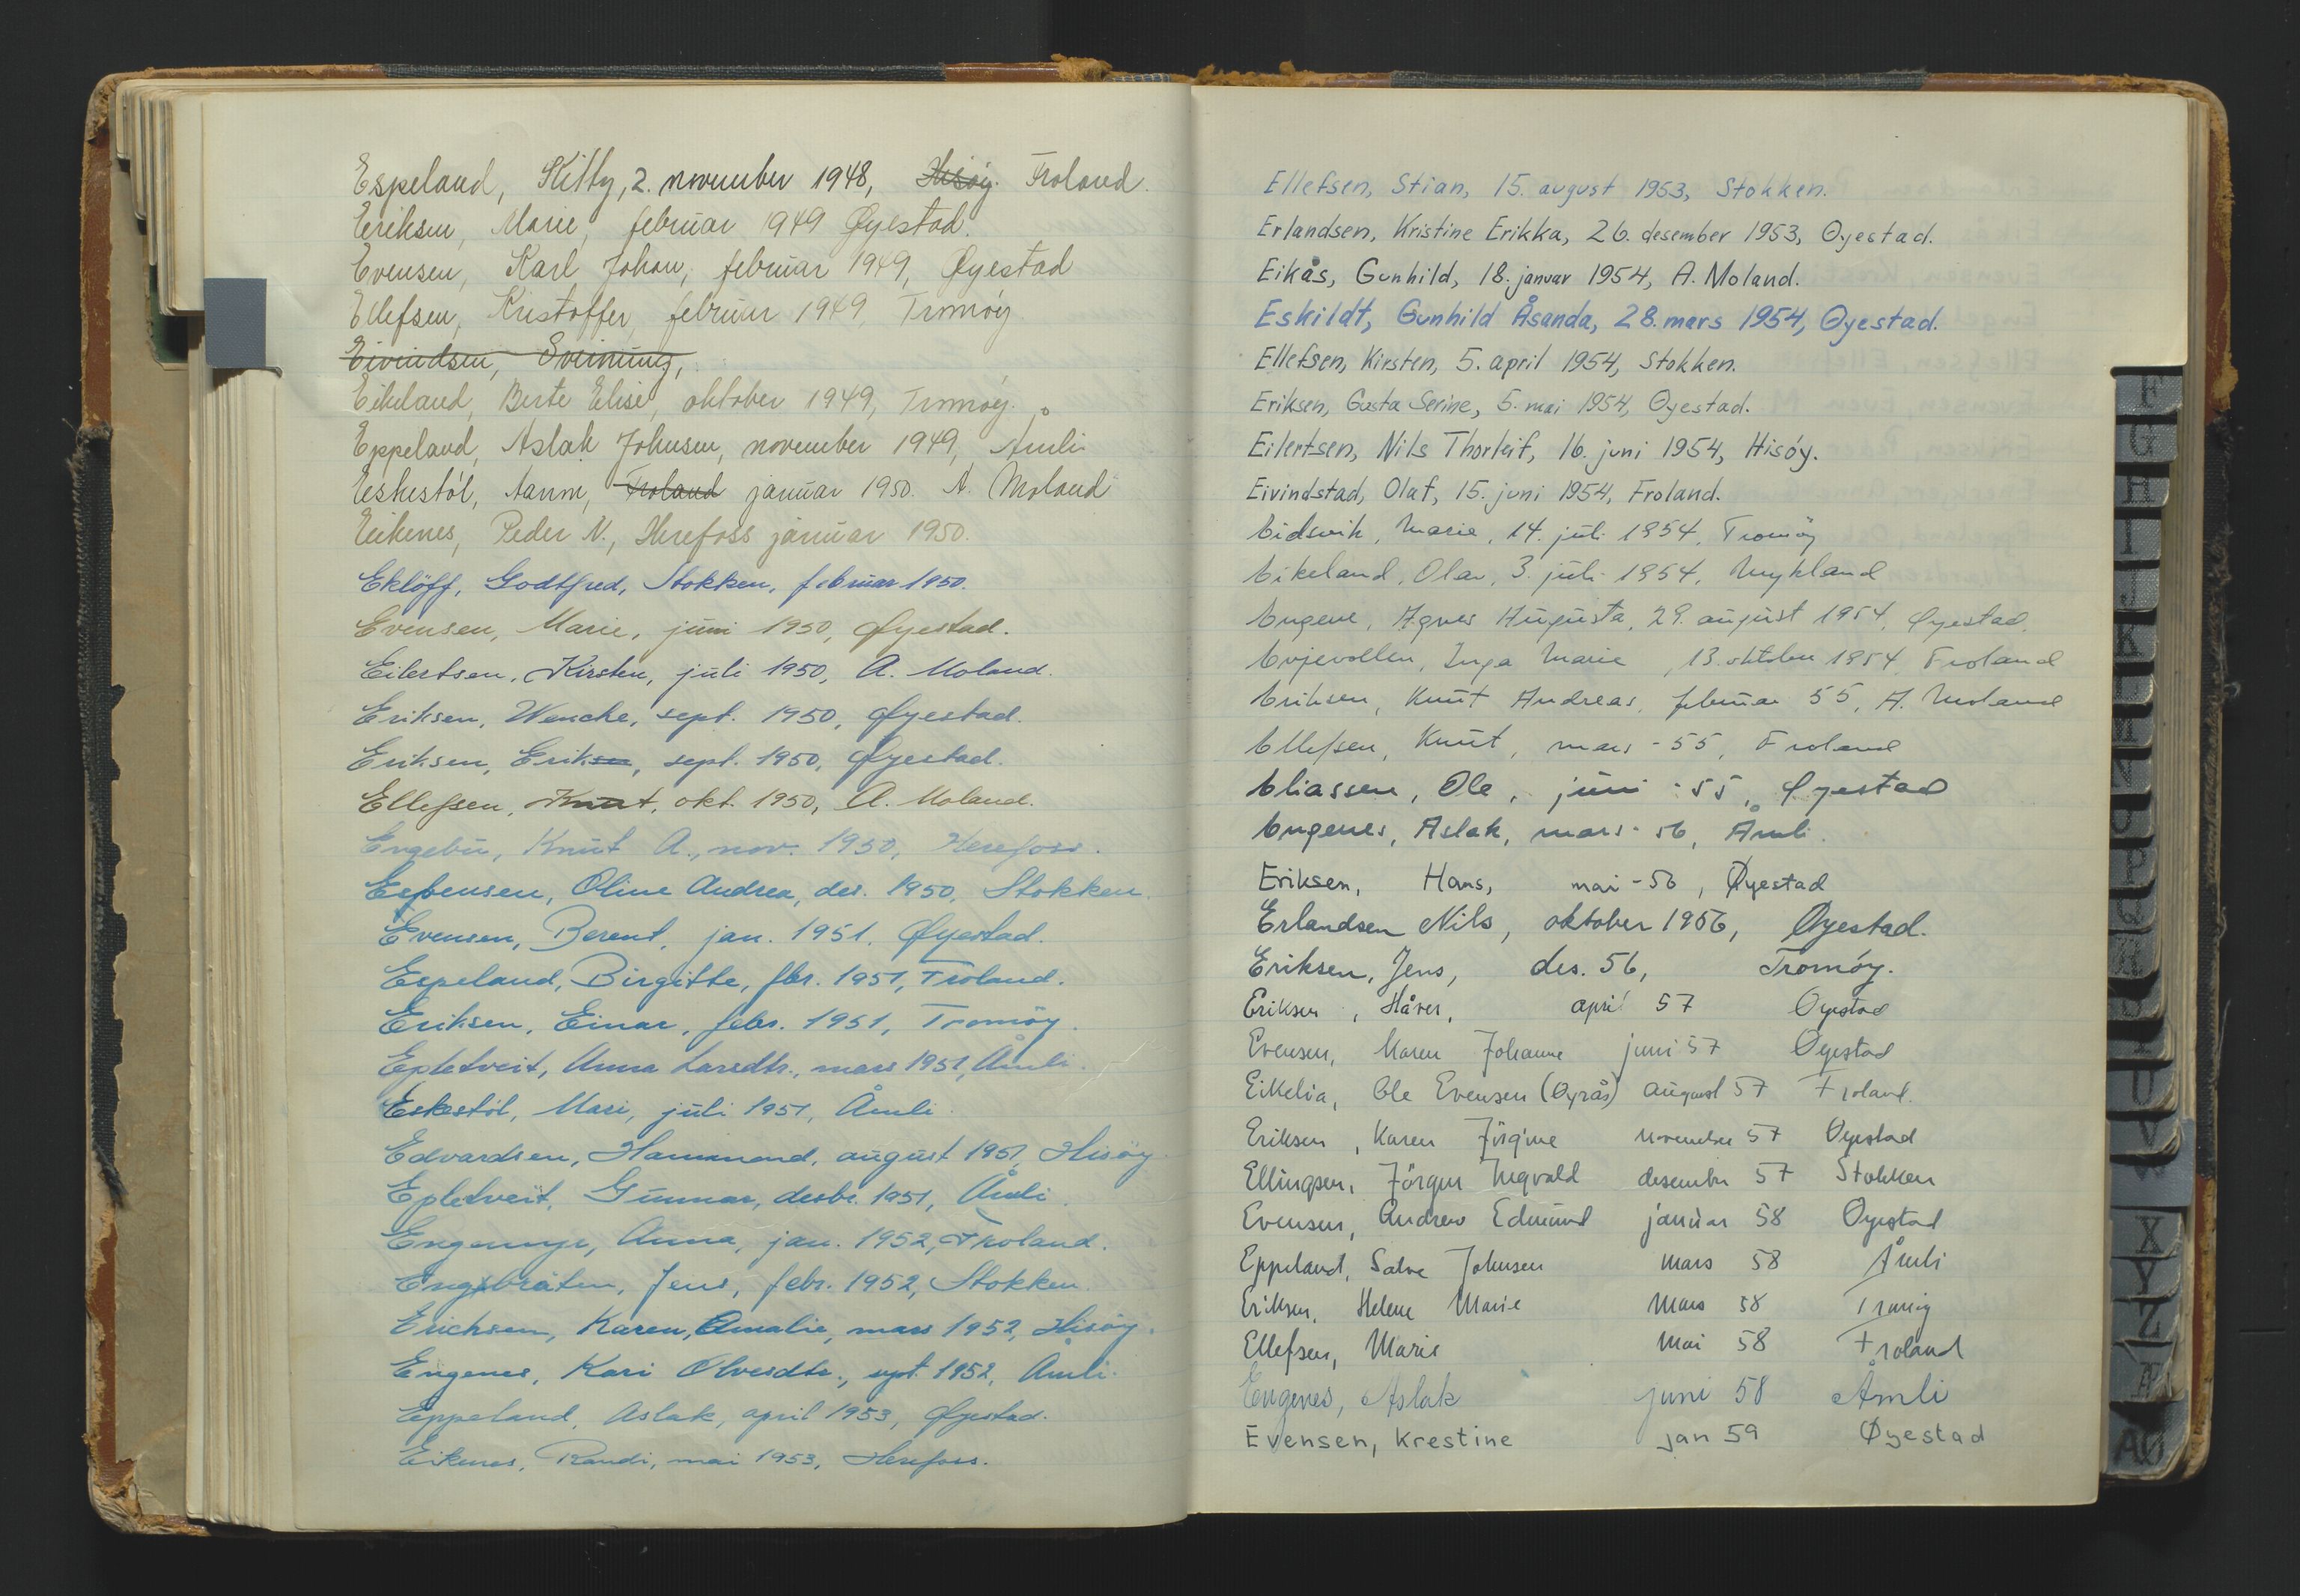 Espeland, Kitty, 2. november 1948, Hisøy. Froland.
Eriksen, Marie, februar 1949 Øyestad.
Evensen, Karl Johan, februar 1949, Øyestad
Ellefsen, Kristoffer, februar 1949, Tromøy
Eivindsen, Sveinung,
Eikeland, Berte Elise, oktober 1949, Tromøy.
Eppeland, Aslak Johnsen, november 1949, Åmli
Eskestøl, Aanm, Froland januar 1950. A. Moland
Eikenes, Peder N., Herefoss januar 1950.
Eklöff, Godtfred, Stokken, februar 1950.
Evensen, Marie, juni 1950, Øyestad.
Eilertsen, Kirsten, juli 1950, A. Moland.
Eriksen, Wenche, sept. 1950, Øyestad.
Eriksen, Eriksen, sept. 1950, Øyestad.
Ellefsen, Knut, okt. 1950, A. Moland.
Engebu, Knut A., nov. 1950, Herefoss.
Espensen, Oline Andrea, des. 1950, Stokken.
Evensen, Berent, jan. 1951, Øyestad.
Espeland, Birgitte, fbr. 1951, Froland.
Eriksen, Einar, febr. 1951, Tromøy.
Epletveit, Anna Larsdtr., mars 1951, Åmli.
Eskestøl, Mari, juli 1951, Åmli.
Edvardsen, Hammond, august 1951, Hisøy
Epletveit, Gunnar, desbr. 1951, Åmli.
Engemyr, Anna, jan. 1952, Froland.
Engebråten, Jens, febr. 1952, Stokken.
Erichsen, Karen, Amalie, mars 1952, Hisøy.
Engenes, Kari Olvesdtr., sept. 1952, Åmli.
Eppeland, Aslak, april 1953, Øyestad.
Eikenes, Randi, mai 1953, Herefoss.
Ellefsen, Stian, 15. august 1953, Stokken.
Erlandsen, Kristine Erikka, 26. desember 1953, Øyestad.
Eikås, Gunhild, 18. januar 1954, A. Moland.
Eskildt, Gunhild Åsanda, 28. mars 1954, Øyestad.
Ellefsen, Kirsten, 5. april 1954, Stokken.
Eriksen, Gusta Serine, 5. mai 1954, Øyestad.
Eilertsen, Nils Thorleif, 16. juni 1954, Hisøy.
Eivindstad, Olaf, 15. juni 1954, Froland.
Eidsvik, Marie, 14. juli 1954, Tromøy
Eikeland, Olav, 3. juli 1954, Mykland
Engene, Agnes Augusta, 29. august 1954, Øyestad.
Evjevollen, Inga Marie, 13. oktober 1954, Froland
Eriksen, Knut Andreas, februar 55, A. Moland
Ellefsen, Knut, mars -55, Froland
Eliassen, Ole, juni -55, Øyestad
Engenes, Aslak, mars -56, Åmli.
Eriksen, Hans, mai -56, Øyestad
Erlandsen Nils, oktober 1956, Øyestad.
Eriksen, Jens, des. 56, Tromøy.
Eriksen, Håver, april 57 Øyestad
Evensen, Maren Johanne juni 57 Øyestad
Eikelia, Ole Evensen (Øyrås) august 57 Froland.
Eriksen, Karen Jörgine november 57 Øyestad
Ellingsen, Jörgen Ingvald desember 57 Stokken
Evensen, Andrew Edmund januar 58 Øyestad
Eppeland, Salve Johnsen mars 58 Åmli
Eriksen, Helene Marie mars 58 Tromøy
Ellefsen, Marie mai 58 Froland
Engenes, Aslak juni 58 Åmli
Evensen, Krestine jan 59 Øyestad
F
G
H
I
J
K
L
M
N
O
P
U
V
X
Y
Z
AØ